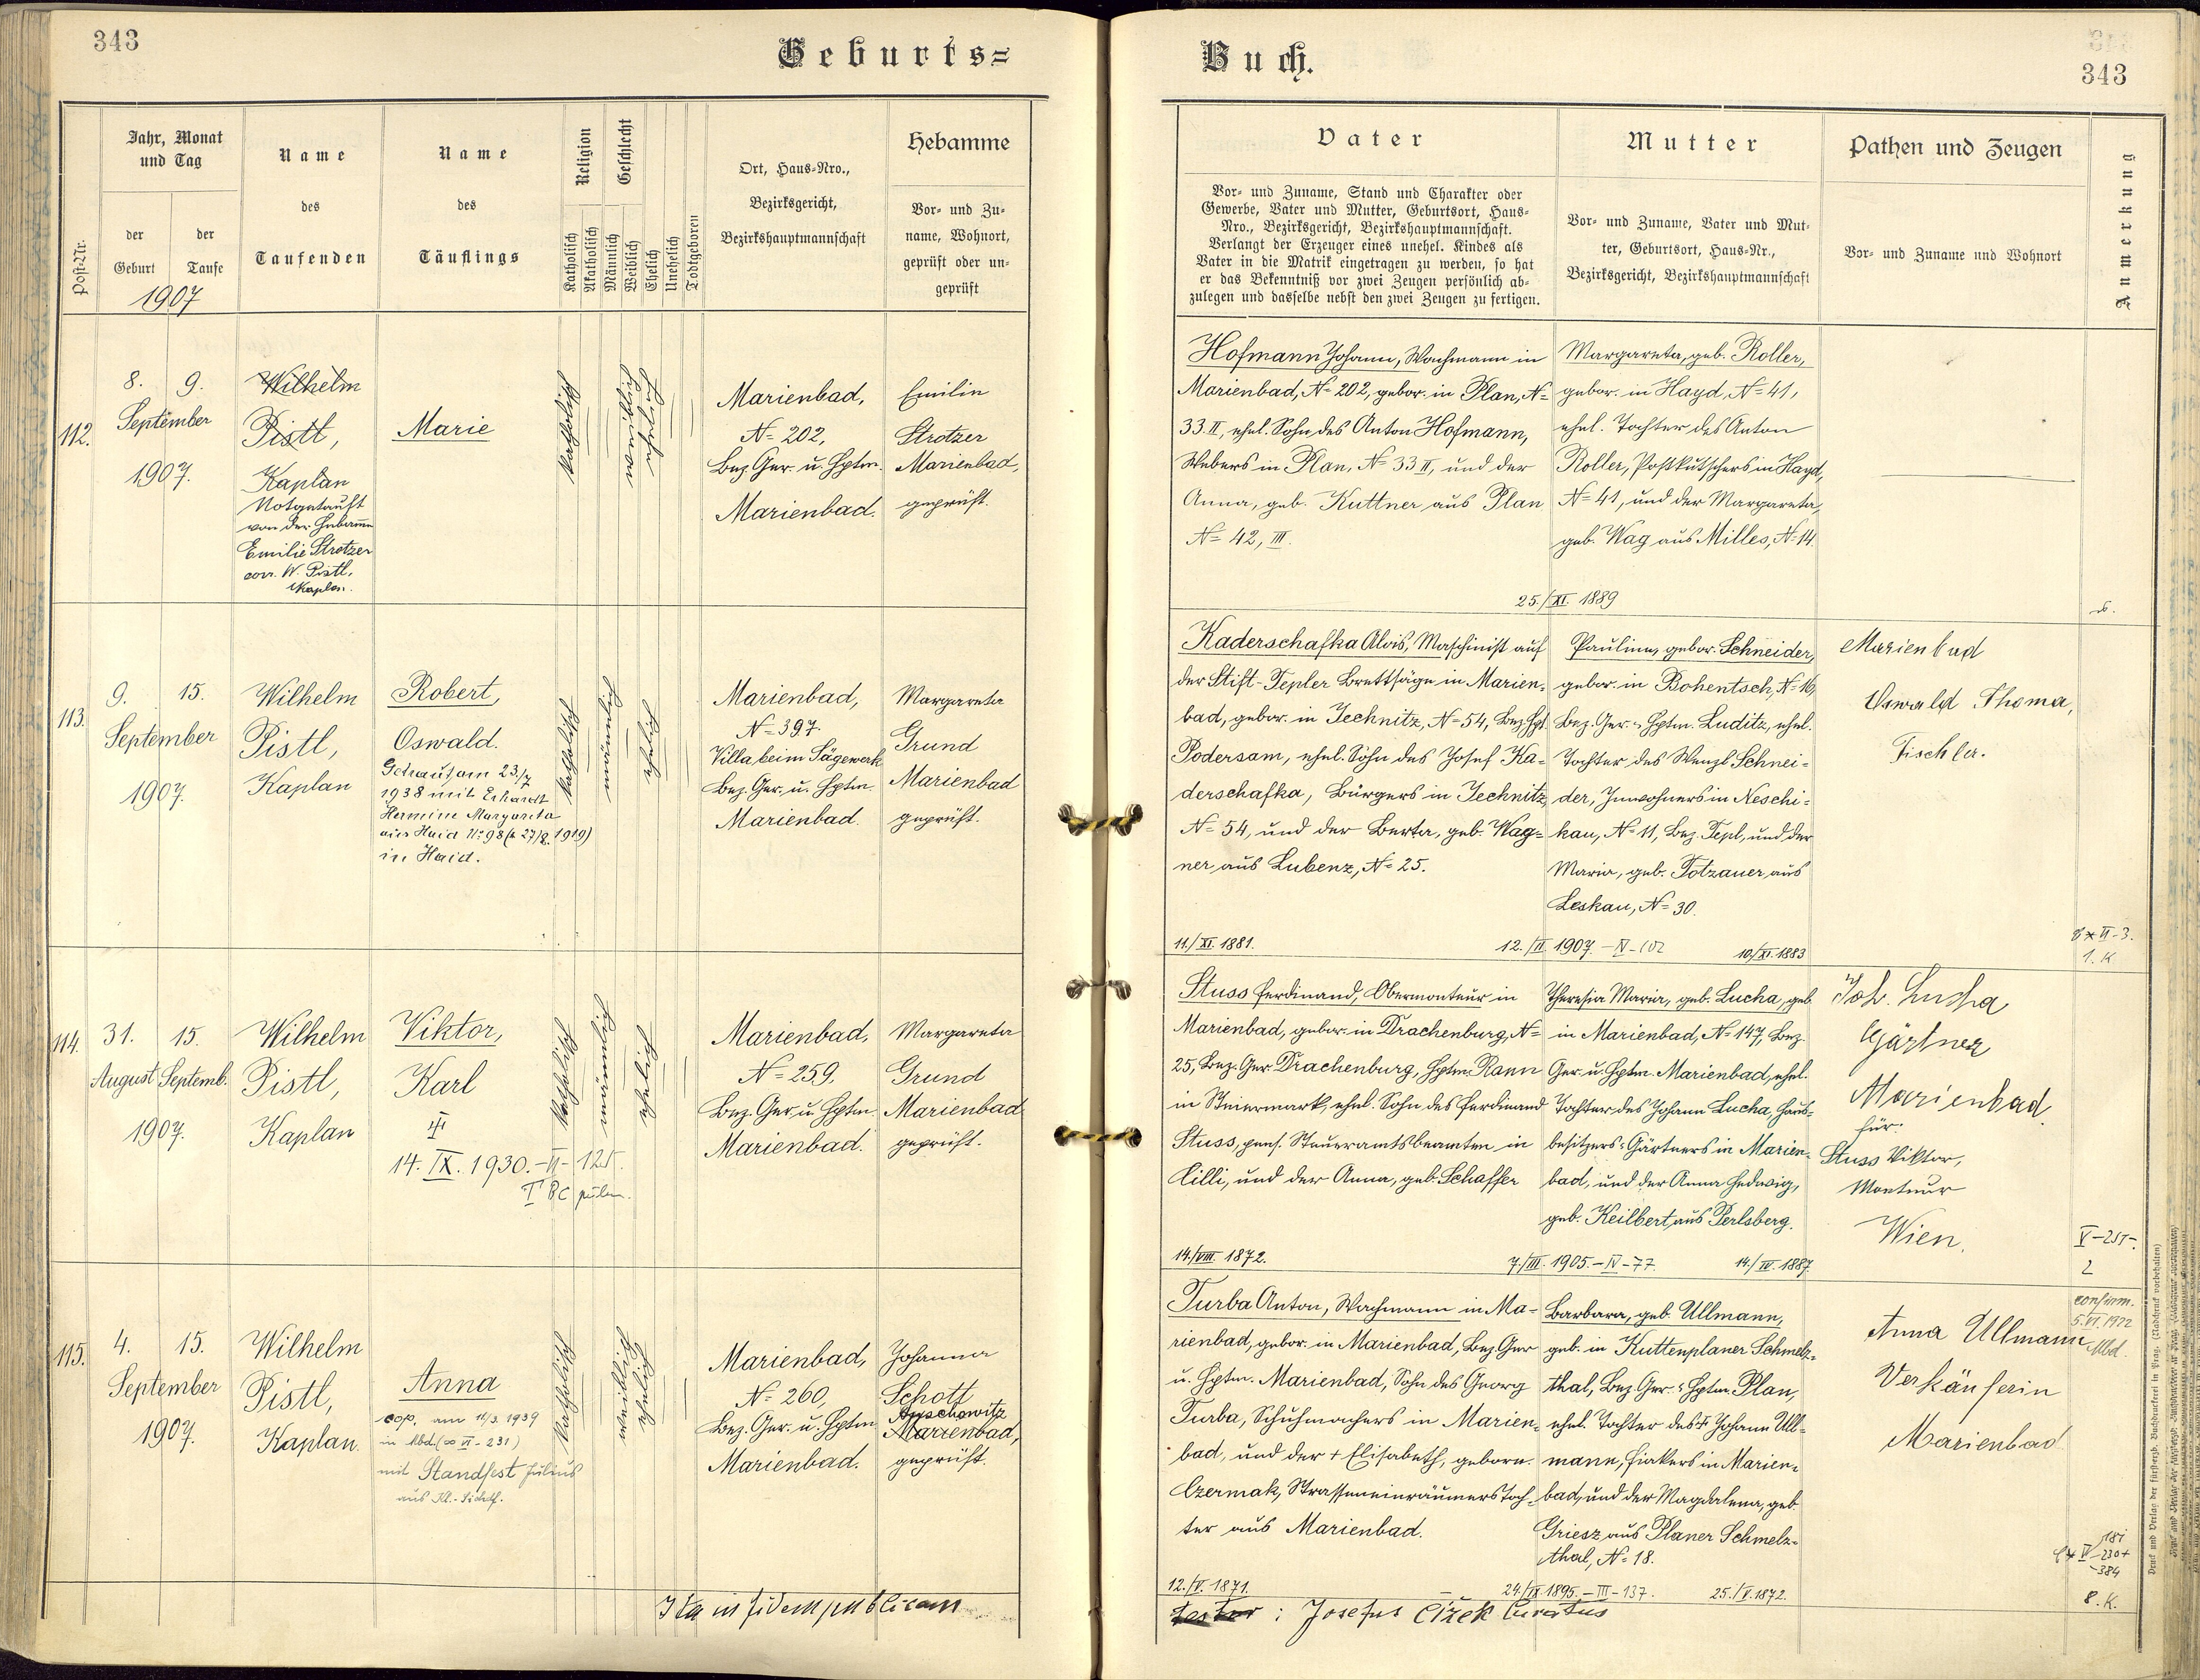 343
Geburts=
Jahr, Monat
und Tag
Name
Name
Religion
Geschlecht
Ort, Haus-Nro.,
Hebamme
Post-Nr.
der
Geburt
der
Taufe
des
Taufenden
des
Täuflings
Katholisch
Akatholisch
Männlich
Weiblich
Ehelich
Unehelich
Todtgeboren
Bezirksgericht,
Bezirkshauptmannschaft
Vor- und Zu-
name, Wohnort,
geprüft oder un-
geprüft
1907
112.
8.
9.
September
1907.
Wilhelm
Pistl,
Kaplan
Notgetauft
von der Hebamme
Emilie Strotzer
corr. W. Pistl,
Kaplan.
Marie
katholisch
Marienbad,
N= 202,
Bez. Ger. u. Hptm.
Marienbad.
Emilie
Strotzer
Marienbad,
geprüft.
113.
9.
15.
September
1907.
Wilhelm
Pistl,
Kaplan
Robert,
Oswald.
Getraut am 23./7
1938 mit Erhardt
Hermine Margareta
aus Haid N: 98 (* 27/8. 1919)
in Haid.
katholisch
männlich
ehelich
Marienbad,
N= 397.
Villa beim Sägewerk
Bez. Ger. u. Hptm.
Marienbad.
Margareta
Grund
Marienbad
geprüft.
114.
31.
15.
August Septemb.
1907.
Wilhelm
Pistl,
Kaplan
Viktor,
Karl
14. IX. 1930. - II - 125.
TBC pulm.
katholisch
männlich
ehelich
Marienbad,
N= 259,
Bez. Ger. u. Hptm.
Marienbad.
Margareta
Grund
Marienbad
geprüft.
115.
4.
15.
September
1907.
Wilhelm
Pistl,
Kaplan.
Anna
cop. am 11/3. 1939
in Mbd. (∞ VI - 231)
mit Standfest Julius
aus
katholisch
weiblich
ehelich
Marienbad,
N= 260,
Bez. Ger. u. Hptm.
Marienbad.
Johanna
Schott
Auschowitz
Marienbad,
geprüft.
Ita in fidem publicam
Buch.
343
Vater
Mutter
Pathen und Zeugen
Anmerkung
Vor- und Zuname, Stand und Charakter oder
Gewerbe, Vater und Mutter, Geburtsort, Haus-
Nro., Bezirksgericht, Bezirkshauptmannschaft.
Verlangt der Erzeuger eines unehel. Kindes als
Vater in die Matrik eingetragen zu werden, so hat
er das Bekenntniß vor zwei Zeugen persönlich ab-
zulegen und dasselbe nebst den zwei Zeugen zu fertigen.
Vor- und Zuname, Vater und Mut-
ter, Geburtsort, Haus-Nr.,
Bezirksgericht, Bezirkshauptmannschaft
Vor- und Zuname und Wohnort
Hofmann Johann, Wachmann in
Marienbad, N= 202, gebor. in Plan, N=
33 II, ehel. Sohn des Anton Hofmann,
Webers in Plan, N= 33 II, und der
Anna, geb. Kuttner aus Plan
N= 42, III.
Margareta, geb. Roller,
gebor. in Hayd, N= 41,
ehel. Tochter des Anton
Roller, Postkutschers in Hayd,
N= 41, und der Margareta,
geb. Wag aus Milles, N= 14.
25./XI. 1889
Kaderschafka Alois, Maschinist auf
der Stift-Tepler Brettsäge in Marien-
bad, gebor. in Jechnitz, N= 54, Bez. Hpt.
Podersam, ehel. Sohn des Josef Ka-
derschafka, Bürgers in Jechnitz,
N= 54, und der Berta, geb. Wag-
ner aus Lubenz, N= 25.
Pauline, gebor. Schneider,
gebor. in Bohentsch, N= 16,
Bez. Ger. u. Hptm. Luditz, ehel.
Tochter des Wenzl Schnei-
der, Inwohners in Neschi-
kau, N= 11, Bez. Tepl, und der
Maria, geb. Totzauer aus
Leskau, N= 30.
Marienbad
Oswald Thoma,
Tischler.
11./XI. 1881.
12./II. 1907. - IV - 102
10./XI. 1883
1. K
Stuss Ferdinand, Obermonteur in
Marienbad, gebor. in Drachenburg, N=
25, Bez. Ger. Drachenburg, Hptm. Rann
in Steiermark, ehel. Sohn des Ferdinand
Stuss, pens. Steueramtsbeamten in
Cilli, und der Anna, geb. Schaffer
Theresia Maria, geb. Lucha, geb.
in Marienbad, N= 147, Bez.
Ger. u. Hptm. Marienbad, ehel.
Tochter des Johann Lucha, Haus-
besitzers u. Gärtners in Marien-
bad, und der Anna Hedwig,
geb. Keilbert aus Perlsberg.
Joh. Lucha
Gärtner
Marienbad
für:
Stuss Viktor,
Monteur
Wien.
14./VIII. 1872.
7./III. 1905. - IV - 77.
14./IV. 1887.
2
Turba Anton, Wachmann in Ma-
rienbad, gebor. in Marienbad, Bez. Ger
u. Hptm. Marienbad, Sohn des Georg
Turba, Schuhmachers in Marien-
bad, und der + Elisabeth, geborn.
Czermak, Strasseneinräumerstoch-
ter aus Marienbad.
Barbara, geb. Ullmann,
geb. in Kuttenplaner Schmelz-
thal, Bez. Ger. u. Hptm. Plan,
ehel. Tochter des + Johann Ull-
mann, Fiakers in Marien-
bad, und der Magdalena, geb.
Griesz aus Planer Schmelz-
thal, N= 18.
Anna Ullmann
Verkäuferin
Marienbad
confirm.
5. VI. 1922
Mbd.
12./V. 1871.
24./IX. 1895. - III - 137.
25./V. 1872.
8. K.
testor : Josefus Čížek Curatus
Druck und Verlag der fürsterzb. Buchdruckerei in Prag. (Nachdruck vorbehalten)